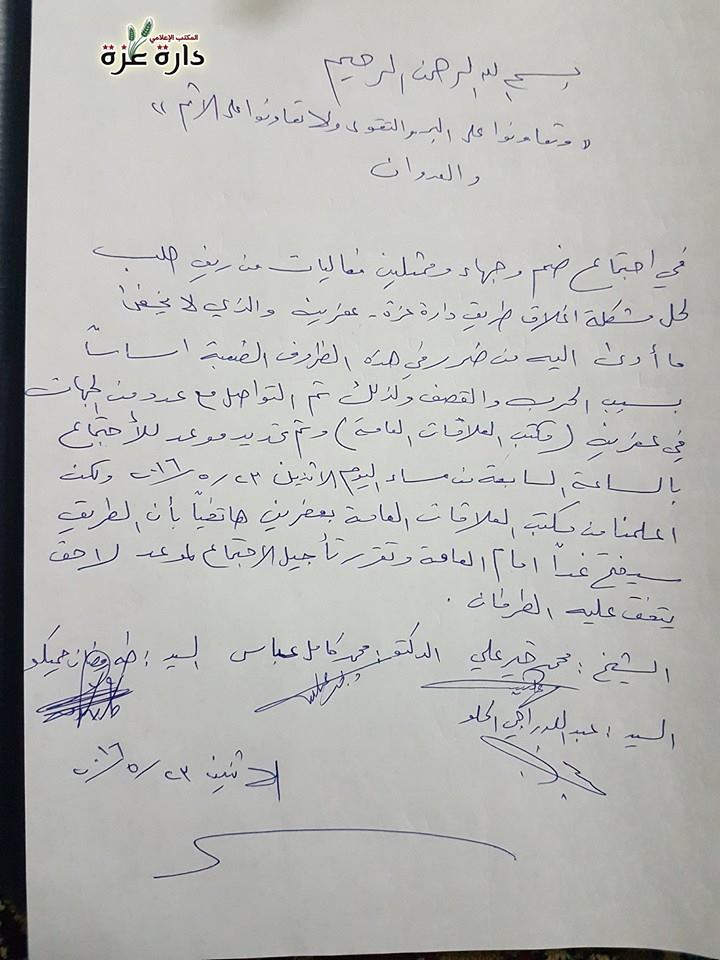 المكتب الإعلامي
دارة عزة
بسم الله الرحمن الرحيم
« وتعاونوا على البر والتقوى ولا تعاونوا على الاثم »
والعدوان
في اجتماع ضم وجهاء وممثلين فعاليات من ريف حلب
لحل مشكلة اغلاق طريق دارة عزة - عفرين والذي لا يخفى
ما أدى اليه من ضرر في هذه الظروف الصعبة اساساً
بسبب الحرب والقصف ولذلك تم التواصل مع عدد من الجهات
في عفرين (مكتب العلاقات العامة) وتم تحديد موعد للأجتماع
بالساعة السابعة من مساء اليوم الاثنين ٢٣/٥/٢٠١٦ ولكن
اعلمنا من مكتب العلاقات العامة بعفرين هاتفياً بأن الطريق
سيفتح غداً امام العامة وتقرر تأجيل الاجتماع لموعد لاحق
يتفق عليه الطرفان .
الشيخ : محمد خير علي الدكتور : محمد كامل عباس السيد : طه رمضان حميكو
السيد : عبد الله راجي الحلو
الاثنين ٢٣/٥/٢٠١٦